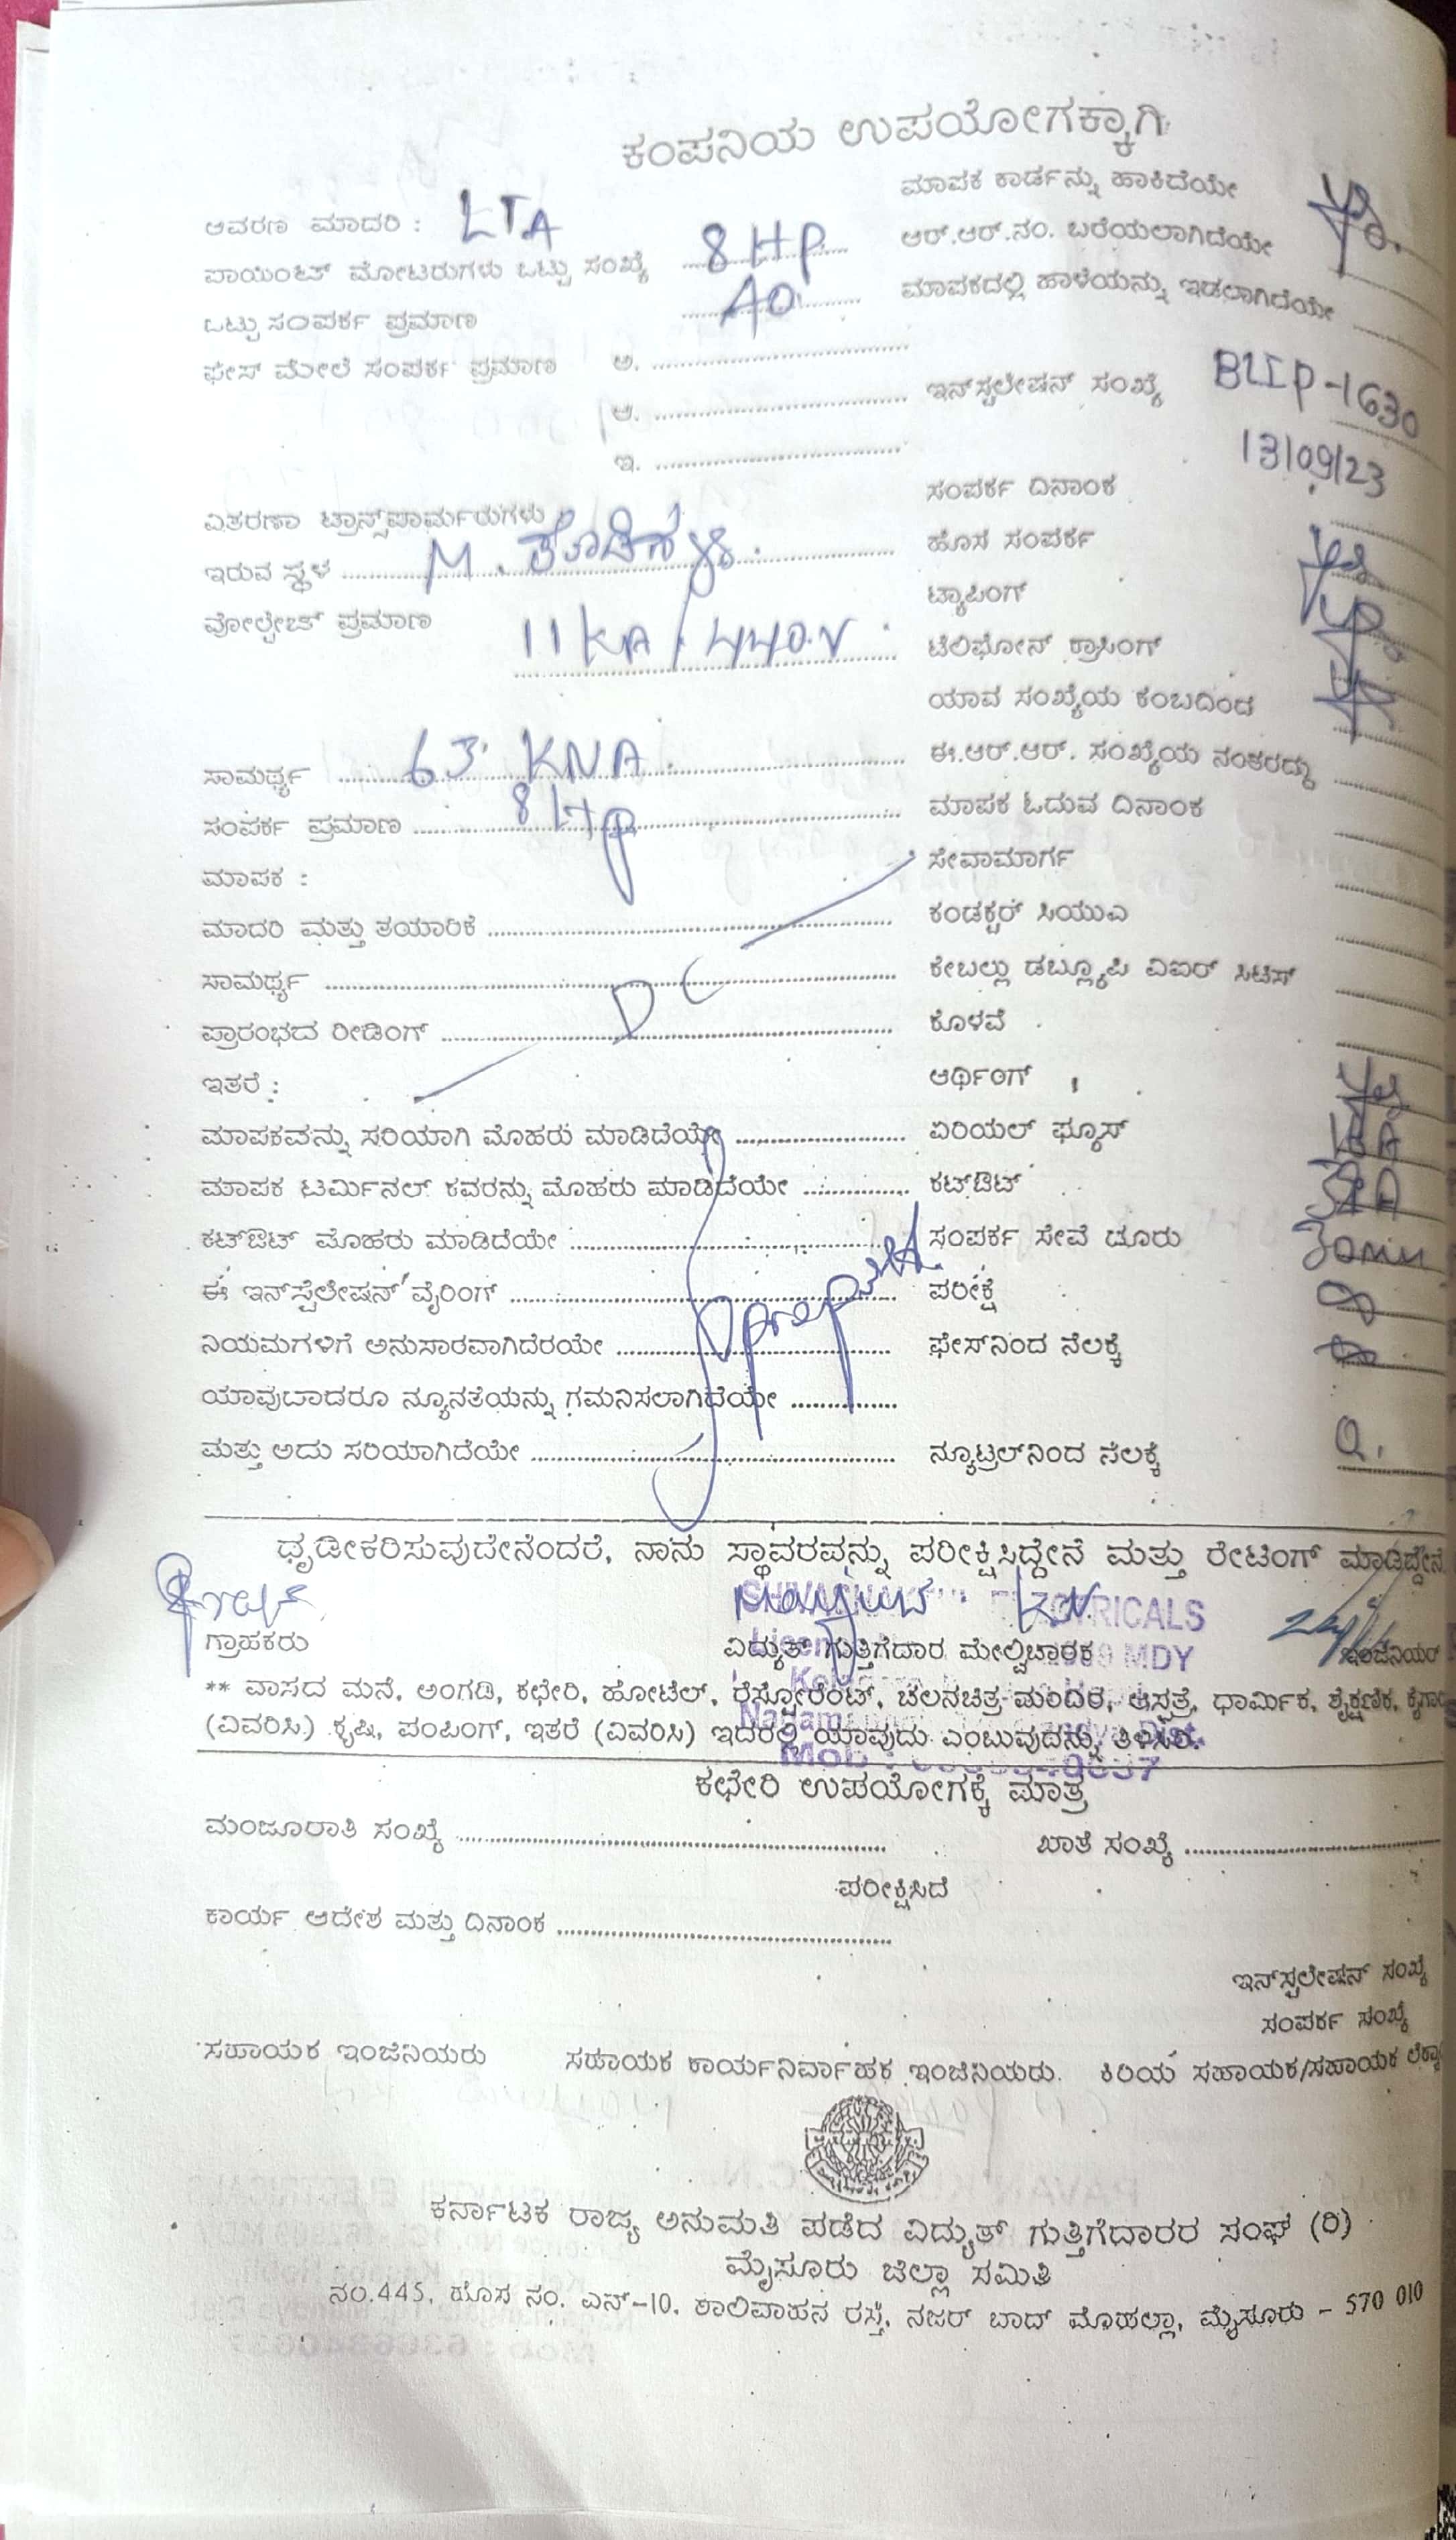 ಕಂಪನಿಯ ಉಪಯೋಗಕ್ಕಾಗಿ
ಆವರಣ ಮಾದರಿ : LTA
ಪಾಯಿಂಟ್ ಮೋಟರುಗಳು ಒಟ್ಟು ಸಂಖ್ಯೆ 8 HP
ಒಟ್ಟು ಸಂಪರ್ಕ ಪ್ರಮಾಣ
ಫೇಸ್ ಮೇಲೆ ಸಂಪರ್ಕ ಪ್ರಮಾಣ ಅ.
ಆ.
ಇ.
ವಿತರಣಾ ಟ್ರಾನ್ಸ್‌ಫಾರ್ಮರುಗಳು
ಇರುವ ಸ್ಥಳ M.
ವೋಲ್ಟೇಜ್ ಪ್ರಮಾಣ
11 / 440.V
ಸಾಮರ್ಥ್ಯ 63
ಸಂಪರ್ಕ ಪ್ರಮಾಣ 8 HP
ಮಾಪಕ :
ಮಾದರಿ ಮತ್ತು ತಯಾರಿಕೆ
ಸಾಮರ್ಥ್ಯ
ಪ್ರಾರಂಭದ ರೀಡಿಂಗ್
ಇತರೆ :
ಮಾಪಕವನ್ನು ಸರಿಯಾಗಿ ಮೊಹರು ಮಾಡಿದೆಯೇ
ಮಾಪಕ ಟರ್ಮಿನಲ್ ಕವರನ್ನು ಮೊಹರು ಮಾಡಿದೆಯೇ
ಕಟ್‌ಔಟ್ ಮೊಹರು ಮಾಡಿದೆಯೇ
ಈ ಇನ್‌ಸ್ಟೆಲೇಷನ್ ವೈರಿಂಗ್
ನಿಯಮಗಳಿಗೆ ಅನುಸಾರವಾಗಿದೆರಯೇ
ಯಾವುದಾದರೂ ನ್ಯೂನತೆಯನ್ನು ಗಮನಿಸಲಾಗಿದೆಯೇ
ಮತ್ತು ಅದು ಸರಿಯಾಗಿದೆಯೇ
ಮಾಪಕ ಕಾರ್ಡನ್ನು ಹಾಕಿದೆಯೇ
ಆರ್.ಆರ್.ನಂ. ಬರೆಯಲಾಗಿದೆಯೇ
ಮಾಪಕದಲ್ಲಿ ಹಾಳೆಯನ್ನು ಇಡಲಾಗಿದೆಯೇ
ಇನ್‌ಸ್ಟಲೇಷನ್ ಸಂಖ್ಯೆ BLIP-1630
ಸಂಪರ್ಕ ದಿನಾಂಕ 13/09/23
ಹೊಸ ಸಂಪರ್ಕ yes
ಟ್ಯಾಪಿಂಗ್
ಟೆಲಿಫೋನ್ ಕ್ರಾಸಿಂಗ್
ಯಾವ ಸಂಖ್ಯೆಯ ಕಂಬದಿಂದ
ಈ.ಆರ್.ಆರ್. ಸಂಖ್ಯೆಯ ನಂತರದ್ದು
ಮಾಪಕ ಓದುವ ದಿನಾಂಕ
ಸೇವಾಮಾರ್ಗ
ಕಂಡಕ್ಟರ್ ಸಿಯುಎ
ಕೇಬಲ್ಲು ಡಬ್ಲ್ಯೂಪಿ ವಿಐರ್ ಸಿಟಿಸ್
ಕೊಳವೆ
ಆರ್ಥಿಂಗ್ yes
ಏರಿಯಲ್ ಫ್ಯೂಸ್
ಕಟ್‌ಔಟ್
ಸಂಪರ್ಕ ಸೇವೆ ದೂರು
ಪರೀಕ್ಷೆ
ಫೇಸ್‌ನಿಂದ ನೆಲಕ್ಕೆ
ನ್ಯೂಟ್ರಲ್‌ನಿಂದ ನೆಲಕ್ಕೆ
ಧೃಡೀಕರಿಸುವುದೇನೆಂದರೆ, ನಾನು ಸ್ಥಾವರವನ್ನು ಪರೀಕ್ಷಿಸಿದ್ದೇನೆ ಮತ್ತು ರೇಟಿಂಗ್ ಮಾಡಿದ್ದೇನೆ
ಗ್ರಾಹಕರು ವಿದ್ಯುತ್ ಗುತ್ತಿಗೆದಾರ ಮೇಲ್ವಿಚಾರಕ ಇಂಜಿನಿಯರ್
** ವಾಸದ ಮನೆ, ಅಂಗಡಿ, ಕಛೇರಿ, ಹೋಟೆಲ್, ರೆಸ್ಟೋರೆಂಟ್, ಚಲನಚಿತ್ರ ಮಂದಿರ, ಆಸ್ಪತ್ರೆ, ಧಾರ್ಮಿಕ, ಶೈಕ್ಷಣಿಕ,
(ವಿವರಿಸಿ) ಕೃಷಿ, ಪಂಪಿಂಗ್, ಇತರೆ (ವಿವರಿಸಿ) ಇದರಲ್ಲಿ ಯಾವುದು ಎಂಬುವುದನ್ನು ತಿಳಿಸಿರಿ.
ಕಛೇರಿ ಉಪಯೋಗಕ್ಕೆ ಮಾತ್ರ
ಮಂಜೂರಾತಿ ಸಂಖ್ಯೆ ಖಾತೆ ಸಂಖ್ಯೆ
ಪರೀಕ್ಷಿಸಿದೆ
ಕಾರ್ಯ ಆದೇಶ ಮತ್ತು ದಿನಾಂಕ
ಇನ್‌ಸ್ಟಲೇಷನ್ ಸಂಖ್ಯೆ
ಸಂಪರ್ಕ ಸಂಖ್ಯೆ
ಸಹಾಯಕ ಇಂಜಿನಿಯರು ಸಹಾಯಕ ಕಾರ್ಯನಿರ್ವಾಹಕ ಇಂಜಿನಿಯರು. ಕಿರಿಯ ಸಹಾಯಕ/ಸಹಾಯಕ
ಕರ್ನಾಟಕ ರಾಜ್ಯ ಅನುಮತಿ ಪಡೆದ ವಿದ್ಯುತ್ ಗುತ್ತಿಗೆದಾರರ ಸಂಘ (ರಿ)
ಮೈಸೂರು ಜಿಲ್ಲಾ ಸಮಿತಿ
ನಂ.445, ಹೊಸ ನಂ. ಎನ್-10, ಶಾಲಿವಾಹನ ರಸ್ತೆ, ನಜರ್ ಬಾದ್ ಮೊಹಲ್ಲಾ, ಮೈಸೂರು - 570 010